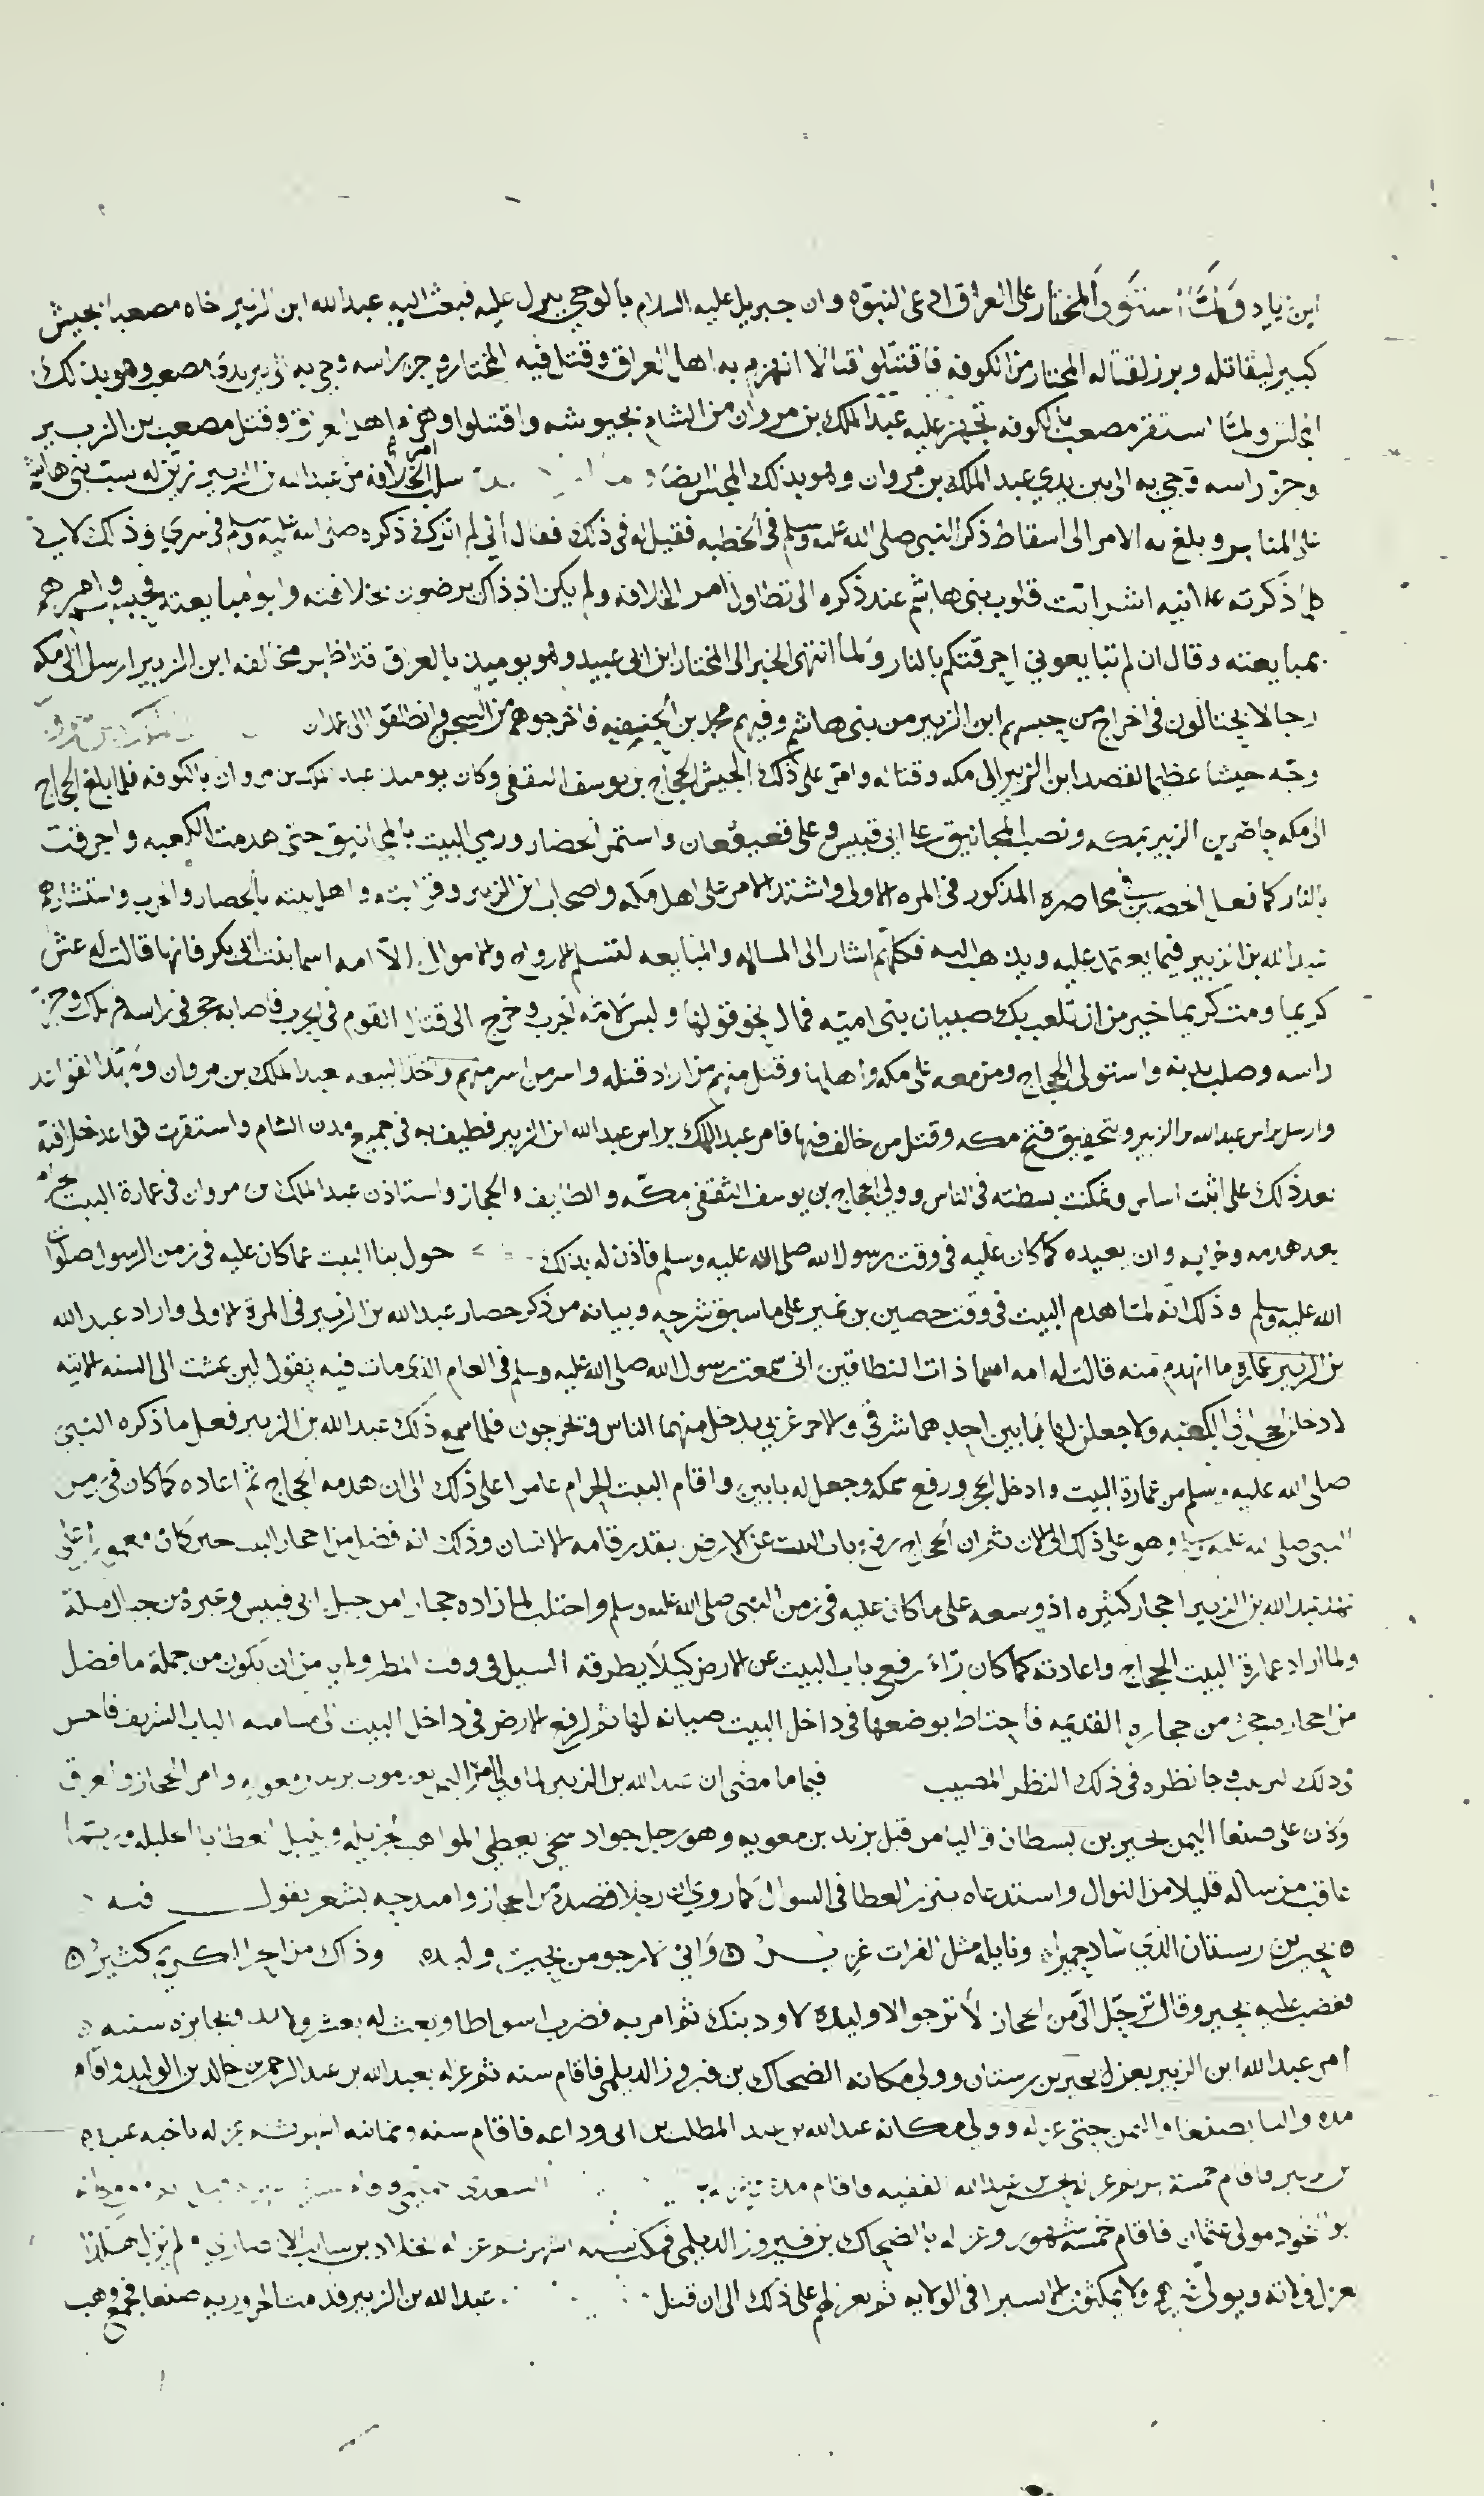 ابن زياد ولما استقر المختار على العراق ادعى النبوه وان جبريل عليه السلام بالوحي ينزل عليه فبعث اليه عبدالله ابن الزبير خاه مصعبا بجيش
كبير ليقاتله وبرز لقتاله المختار من الكوفه فاقتتلوا قتالا انهزم به اهل العراق وقتل فيه المختار وجز راسه وجي به الى بين يدي مصعب وهو بذلك
المجلس ولما استقر مصعب بالكوفه تجهز عليه عبد الملك بن مروان من الشام بجيوشه واقتتلوا وهزم اهل العراق وقتل مصعب بن الزبير
وجز راسه وجي به الى بين يدي عبد الملك بن مروان وهو بذلك المجلس ايضا سلب امر الخلافه من عبدالله بن الزبير زين له سب بني هاشم
على المنابر وبلغ به الامر الى اسقاط ذكر النبي صلى الله عليه وسلم في الخطبه فقيل له في ذلك فقال اني لم اترك ذكره صلى الله عليه وسلم في سري وذلك لاني
كلما ذكرته علانيه اشرابت قلوب بني هاشم عند ذكره الى تطاول امر الخلافه ولم يكن اذ ذاك يرضون بخلافته وابوا مبايعته فحبسهم وامرهم
بمبايعته وقال ان لم تبايعوني احرقتكم بالنار ولما انتهى الخبر الى المختار ابن ابي عبيد وهو يوميذ بالعراق قد اظهر مخالفه ابن الزبير ارسل الى مكه
رجالا يحتالون في اخراج من حبسهم ابن الزبير من بني هاشم وفيهم محمد بن الحنفيه فاخرجوهم من السجن وانطلقوا الى
وجه جيشا عظيما لقصد ابن الزبير الى مكه وقتاله وامر على ذلك الجيش الحجاج بن يوسف الثقفي وكان يوميذ عبد الملك بن مروان بالكوفه فلما بلغ الحجاج
الى مكه حاصر بن الزبير بمكه ونصب المجانيق على ابي قبيس وعلى قعيقعان واستمر الحصار ورمي البيت بالمجانيق حتى هدمت الكعبه واحرقت
بالنار كما فعل الحصين في محاصره المذكور في المره الاولى واشتد الامر على اهل مكه واصحاب ابن الزبير وقرابته واهل بيته بالحصار والحرب واستشارهم
عبدالله بن الزبير فيما يعتمد عليه ويذهب اليه فكلهم اشار الى المسالمه والمبايعه لتسلم الارواح والاموال الا امه اسما بنت ابي بكر فانها قالت له عش
كريما ومت كريما خير من ان تلعب بك صبيان بني اميه فمال نحو قولها ولبس لامة الحرب وخرج الى قتال القوم في الحرب فاصابه حجر في راسه فهلك وجز
راسه وصلب بدنه واستولى الحجاج ومن معه على مكه واهلها وقتل منهم من اراد قتله واسر من اسر منهم واخذ البيعه لعبد الملك بن مروان ومهد القواعد
وارسل براس عبدالله بن الزبير وبتحقيق فتح مكه وقتل من خالف فيها فامر عبدالملك براس عبدالله ابن الزبير فطيف به في جميع مدن الشام واستقرت قواعد خلافته
بعد ذلك على اثبت اساس وتمكنت بسطته في الناس وولي الحجاج بن يوسف الثقفي مكه والطايف والحجاز واستاذن عبد الملك بن مروان في عمارة البيت الحرام
بعد هدمه وخرابه وان يعيده كما كان عليه في وقت رسول الله صلى الله عليه وسلم فاذن له بذلك حول بنا البيت عما كان عليه في زمن الرسول صلوات
الله عليه وسلم وذلك انه لما هدم البيت في وقت حصين بن نمير على ما سبق شرحه وبيانه من ذكر حصار عبدالله بن الزبير في المرة الاولى واراد عبدالله
بن الزبير عمارة ما انهدم منه قالت له امه اسما ذات النطاقين اني سمعت رسول الله صلى الله عليه وسلم في العام الذي مات فيه يقول لين عشت الى السنه الاتيه
لادخلن الحجر في الكعبه ولاجعلن لها بابين احدهما شرقي والاخر غربي يدخل منهما الناس ويخرجون فلما سمع ذلك عبدالله بن الزبير فعل ما ذكره النبي
صلى الله عليه وسلم من عمارة البيت وادخل الحجر ورفع سمكه وجعل له بابين واقام البيت الحرام عامرا على ذلك الى ان هدمه الحجاج ثم اعاده كما كان في زمن
النبي صلى الله عليه وسلم وهو على ذلك الى الان ثم ان الحجاج رفع باب البيت عن الارض بقدر قامه الانسان وذلك انه فضل من احجار البيت حين كان معمورا على
عهد عبدالله بن الزبير احجار كثيره اذ وسعه على ما كان عليه في زمن النبي صلى الله عليه وسلم واجتلب لما زاده حجارا من جبل ابي قبيس وغيره من جبال مكة
ولما اراد عمارة البيت الحجاج واعادته كما كان راى رفع باب البيت عن الارض كيلا يطرقه السيل في وقت المطر ولابد من ان يكون من جملة ما فضل
من احجاره حجر من حجاره القديمه فاحتاط بوضعها في داخل البيت صيانه لها ثم لرفع الارض في داخل البيت الباب الشريف فاحسن
ذلك وجا نظره في ذلك النظر المصيب فيما ما مضى ان عبدالله بن الزبير لما ولي الامر بعد موت يزيد بن معويه وامر الحجاز والعراق
وكان على صنعا اليمن بحير بن بسطان واليا من قبل يزيد بن معويه وهو رجل جواد سخي يعطي المواهب الجزيله وينيل العطايا الجليله وربما
عاقب من ساله قليلا من النوال واستدعاه بنزر العطا في السوال كما روي ان رجلا قصده من الحجاز وامتدحه بشعر يقول فيه
بحير بن رستان الذي ساد حميرا ونايله مثل الفرات غزير واني لارجو من بحير وليده وذاك من الحر الكريم كثير
فغضب عليه بحير وقال ترحل الي من الحجاز لا ترجو الا وليده لاودبنك ثم امر به فضرب اسواطا وبعث له بعشر ولايد وبجايزه سنيه
امر عبدالله ابن الزبير بعزل بحير بن رستان وولي مكانه الضحاك بن فيروز الديلمي فاقام سنه ثم عزله بعبدالله بن عبد الرحمن بن خالد بن الوليد واقام
مده واليا بصنعا واليمن حتى عزله وولي مكانه عبدالله بن عبد المطلب بن ابي وداعه فاقام سنه وثمانيه اشهر ثم عزله باخيه عبيده
بن الزبير فاقام خمسة اشهر ثم عزله عبدالله الفقيه واقام مدة السعدي
مولى عثمان فاقام خمسه شهور وعزله بالضحاك بن فيروز الديلمي فمكث سته اشهر ثم عزله بخلاد بن سايب الانصاري ولم يزل هكذا
يعزل ولاته ويولي غيرهم ولا يمكثون الا يسيرا في الولايه ثم يعزلهم على ذلك الى ان قتل عبدالله بن الزبير قدمت الحروريه صنعا فجمع وهب